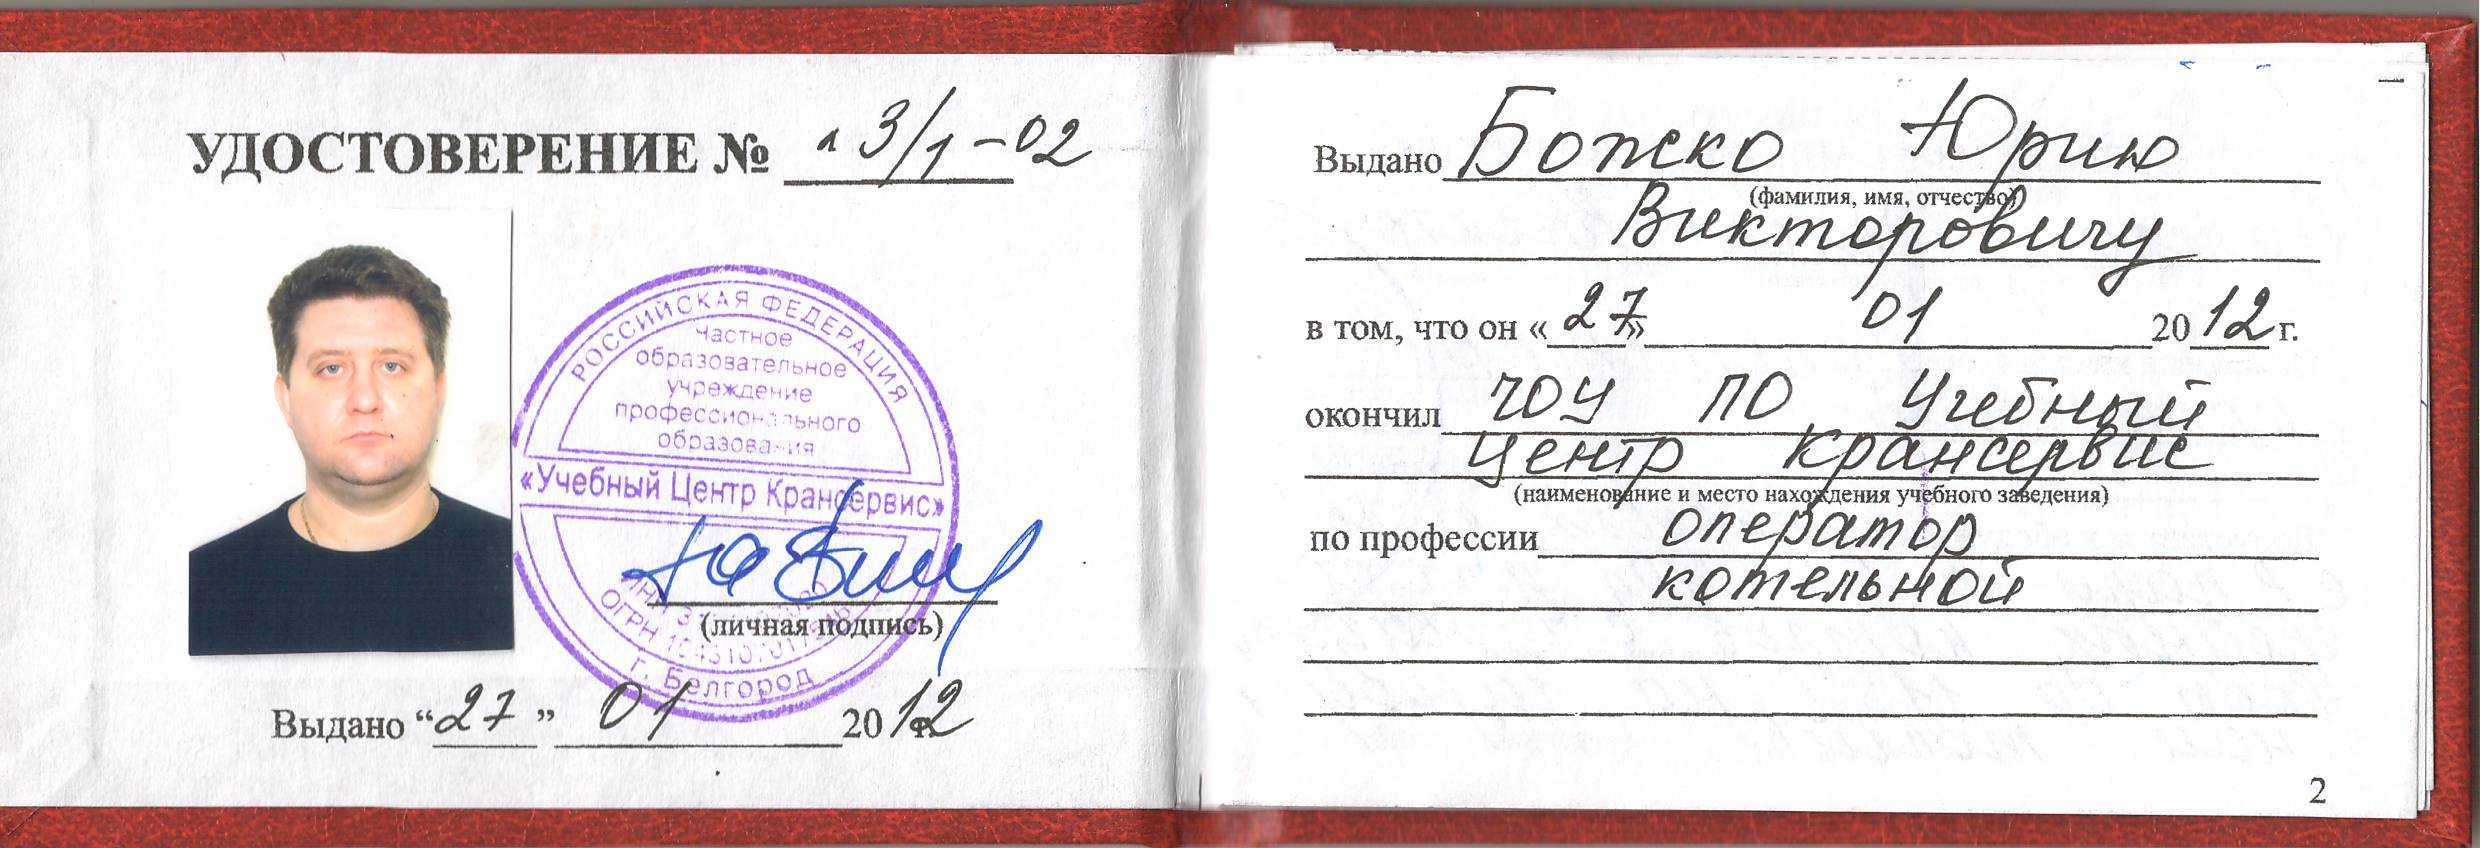 УДОСТОВЕРЕНИЕ № 13/1-02
РОССИЙСКАЯ ФЕДЕРАЦИЯ
Частное
образовательное
учреждение
профессионального
образования
«Учебный Центр Крансервис»
ИНН
ОГРН
г. Белгород
(личная подпись)
Выдано “27” 01 2012 г.
Выдано Божко Юрию
(фамилия, имя, отчество)
Викторовичу
в том, что он «27» 01 2012 г.
окончил ЧОУ ПО Учебный
центр Крансервис
(наименование и место нахождения учебного заведения)
по профессии оператор
котельной
2